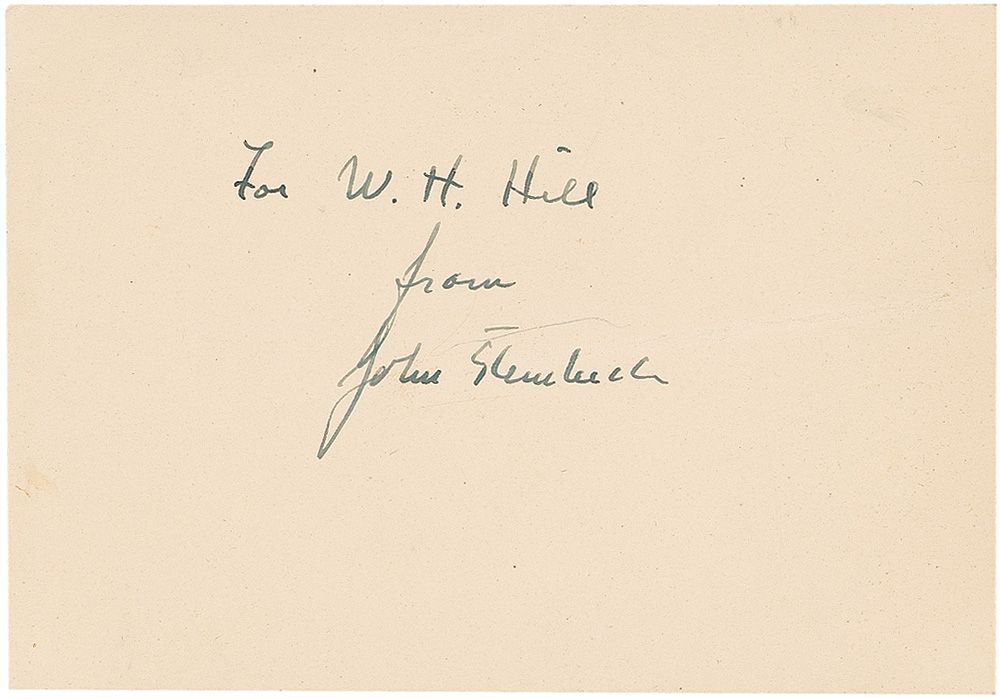 For W. H. Hill
from
John Steinbeck